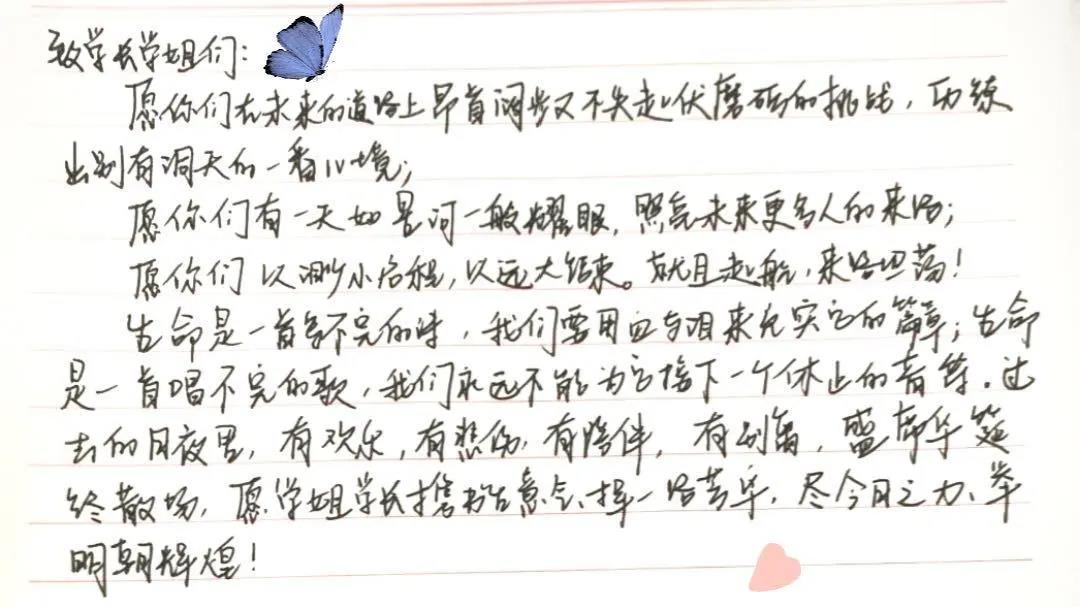 致学长学姐们:
愿你们在未来的道路上昂首阔步又不失起伏磨砺的挑战,历练
出别有洞天的一番心境;
愿你们有一天如星河一般耀眼,照亮未来更多人的来路;
愿你们以渺小启程,以远大结束。就且起航,来路坦荡!
生命是一首写不完的诗,我们要用血与泪来充实它的篇章;生命
是一首唱不完的歌,我们永远不能为它接下一个休止的音符。过
去的日夜里,有欢乐,有悲伤,有陪伴,有别离,盛席华筵
终散场,愿学姐学长携书生意气、择一路芳华,尽今日之力、举
明朝辉煌!